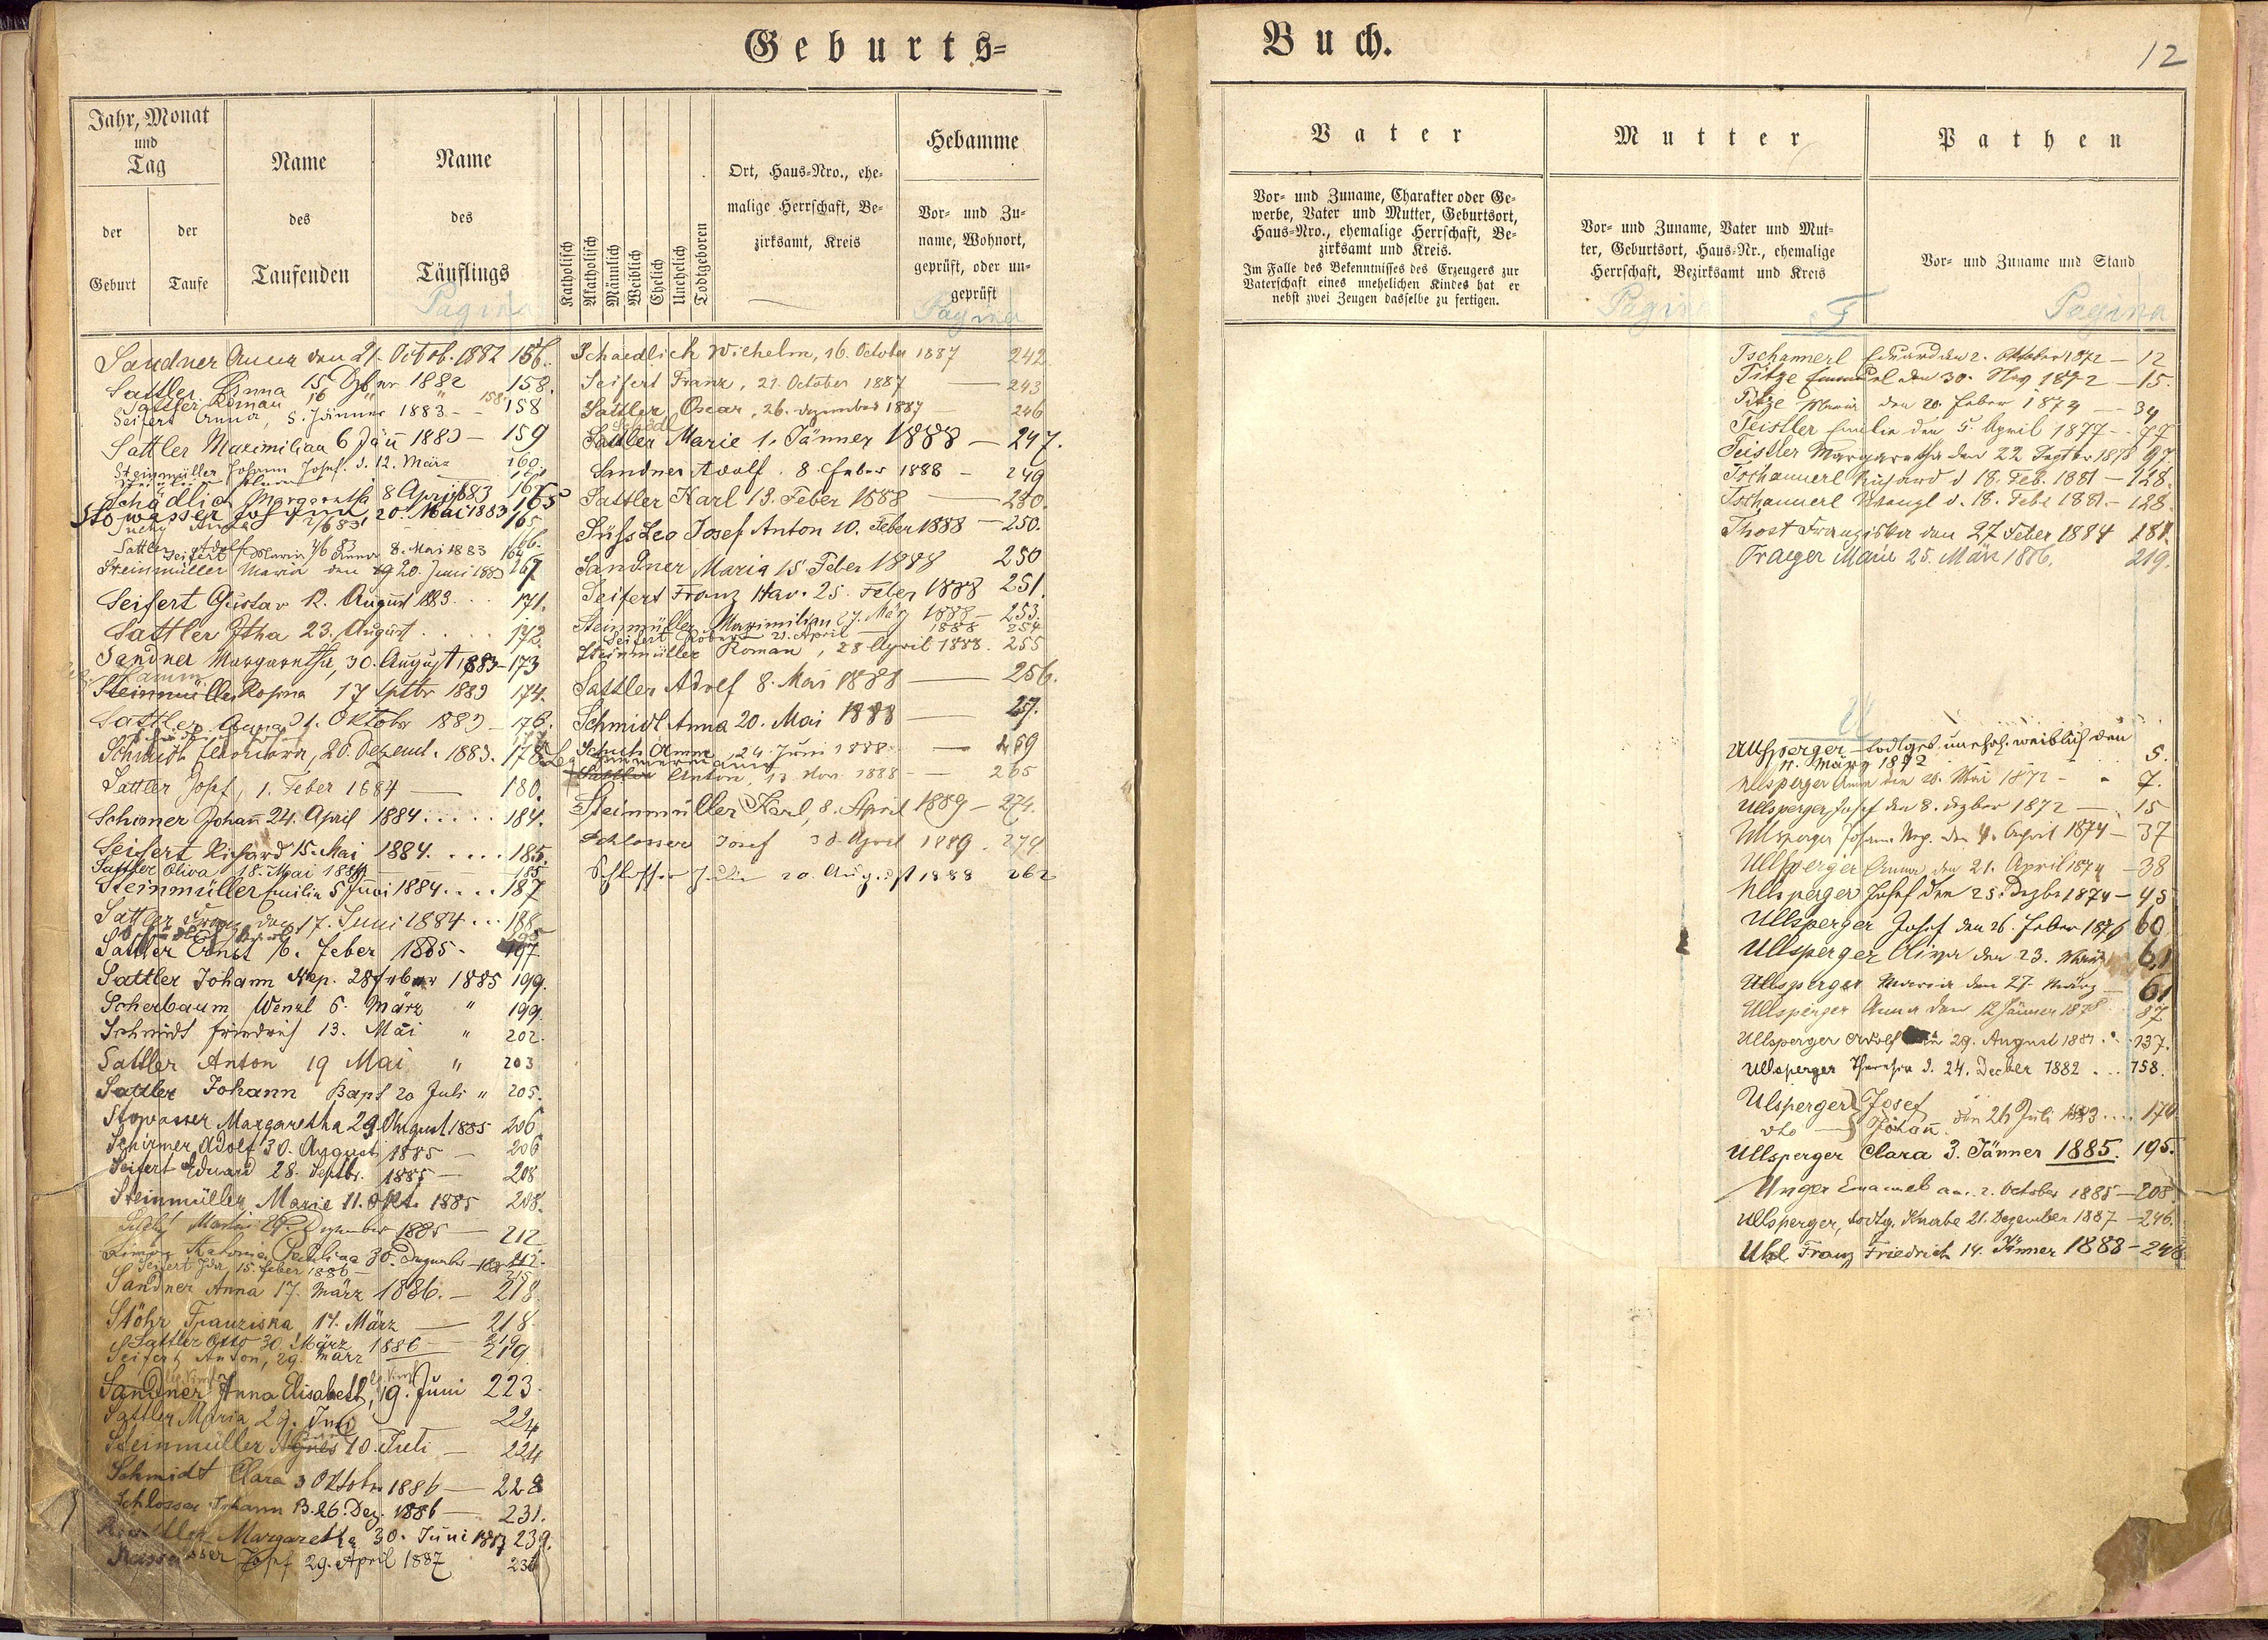 Geburts=
Buch.
12
Jahr, Monat
und
Tag
der
Geburt
der
Taufe
Name
des
Taufenden
Name
des
Täuflings
Pagina
Katholisch
Akatholisch
Männlich
Weiblich
Ehelich
Unehelich
Todtgeboren
Ort, Haus=Nro., ehe=
malige Herrschaft, Be=
zirksamt, Kreis
Hebamme
Vor= und Zu=
name, Wohnort,
geprüft, oder un=
geprüft
Pagina
Sandner Anna den 21. Octob. 1882 156.
Sattler Anna 15 Dzbr 1882 158.
Sattler Roman 16 " " 158.
Seifert Anna, 5. Jänner 1883 - - 158
Sattler Maximilian 6 Jän 1883 — 159
Steinmüller Johann Josef. d. 12. März 160.
Schädlich Margaretha 8 April 83 163
Stowasser 20. Mai 1883 165
Sattler Adolf
Seifert Maria Anna 8. Mai 1883 164
Steinmüller Maria den 20. Juni 1883 167
Seifert Gustav 12. August 1883. . . 171.
Sattler Itha 23. August . . . . . 172.
Sandner Margaretha, 30. August 1883 - 173
Steinmüller Rosina 17 Sptbr 1883 174.
Sattler Anna 1. Oktober 1883 - 176.
Schmidt Eleonora, 20. Dezemb. 1883. 178
Sattler Josef, 1. Feber 1884 — 180.
Schirmer Johañ 24. April 1884 . . . . . 184.
Seifert Richard 15. Mai 1884. . . . . 185.
Sattler Oliva 18. Mai 1884 185
Steinmüller Emilie 5 Juni 1884 . . . . 187
Sattler Franz den 17. Juni 1884 . . . 188
Sattler Ernst 16. Feber 1885 - 197
Sattler Johann Nep. 28 Feber 1885 199.
Scherbaum Wenzl 6. März " 199.
Schmidt Friedrich 13. Mai " 202.
Sattler Anton 19 Mai " 203
Sattler Johann Bapt 20 Juli " 205.
Stowasser Margaretha 29 August 1885 206
Schirmer Adolf 30. August 1885 — 206
Seifert Eduard 28. Septbr. 1885 — 208
Steinmüller Marie 11. Okt. 1885 208.
Maria 27. Dezember 1885 — 212
Simon Antonia Paulina 30. Dezember 212.
Seifert Ida, 15. Feber 1886 — 215
Sandner Anna 17. März 1886. — 218.
Stöhr Franziska 14. März — 218.
Sattler Otto 30. März 1886 — 219
Seifert Anton, 29. März — 219
Sandner Anna Elisabeth, 19. Juni 223.
Sattler Maria 29. Juni 224
Steinmüller Agnes 10. Juli — 224
Schmidt Clara 3 Oktober 1886 — 228
Schlosser Johann B. 26. Dez. 1886 — 231.
Margaretha 30. Juni 1887 239.
Josef 29. April 1887 236
Schaedlich Wilhelm, 16. October 1887 242.
Seifert Franz, 21. October 1887 — 243
Sattler Oscar, 26. Dezember 1887 246
Schedl
Sattler Marie 1. Jänner 1888 — 247.
Sandner Adolf. 8. Feber 1888 - 249
Sattler Karl 13. Feber 1888 — 250.
Süfs Leo Josef Anton 10. Feber 1888 — 250.
Sandner Maria 15. Feber 1888 250
Seifert Franz Xav. 25. Feber 1888 251.
Steinmüller Maximilian 27. März 1888 — 253.
Seifert Robert 21. April — 1888 254
Steinmüller Roman, 28 April 1888. 255
Sattler Adolf 8. Mai 1888 — 256.
Schmidl Anna 20. Mai 1888 — 257.
Schuh Anna, 24. Juni 1888 — 259
Sattler Anton, 13. Nov. 1888 - — 265
Steinmüller Karl, 8. April 1889 — 274.
Schlosser Josef 30. April 1889. 274
Schlosser Julie 20. August 1888 262
Vater
Vor= und Zuname, Charakter oder Ge=
werbe, Vater und Mutter, Geburtsort,
Haus=Nro., ehemalige Herrschaft, Be=
zirksamt und Kreis.
Im Falle des Bekenntnisses des Erzeugers zur
Vaterschaft eines unehelichen Kindes hat er
nebst zwei Zeugen dasselbe zu fertigen.
Mutter
Vor= und Zuname, Vater und Mut=
ter, Geburtsort, Haus=Nr., ehemalige
Herrschaft, Bezirksamt und Kreis
Pagina
Pathen
Vor= und Zuname und Stand
T
Pagina
Tschammerl Eduard den 2. Oktober 1872 — 12
Titze Emanuel den 30. Nov. 1872 — 15.
Titze Maria den 20. Feber 1874 — 34
Teistler Emilie den 5. April 1877 — 77
Teistler Margaretha den 22 Septbr 1878 97
Tschammerl Richard d 18. Feb. 1881 — 128.
Tschammerl d. 18. Febr 1881. — 128.
Thost Franziska den 27 Feber 1884 181.
Traeger Marie 25. März 1886. 219.
U
Ullsperger — todtgeb. unehel. weiblich den
11. März 1872 5.
Ullsperger Anna den 28. Mai 1872 - - 7.
Ullsperger Josef den 8. Dzber 1872 — 15
Ullsperger Johann Nep. den 4. April 1874 — 37
Ullsperger Anna den 21. April 1874 — 38
Ullsperger Josef den 25. Dezbr 1874 — 45
Ullsperger Josef den 26. Feber 1876 60
Ullsperger Oliva den 23. März 61
Ullsperger Maria den 27. März — 61
Ullsperger Anna den 12 Jänner 1878 . 87
Ullsperger Adolf 29. August 1881 . . 137.
Ullsperger Theresia d. 24. Decber 1882 . . . 158.
Ulsperger Josef
dto — Johañ. den 26 Juli 1883 . . . . 170
Ullsperger Clara 3. Jänner 1885. 195.
Unger Emanuel am. 2. October 1885 — 208.
Ullsperger, todtg. Knabe 21. Dezember 1887 — 246.
Uhl Franz Friedrich 14. Jänner 1888 - 248